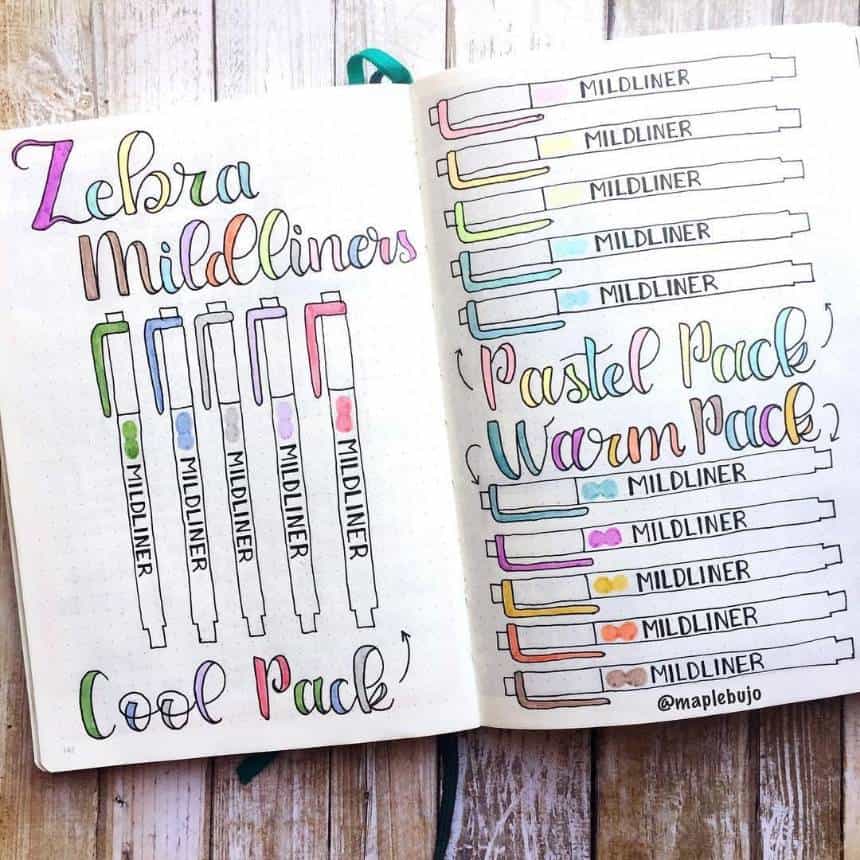 Zebra
Mildliners
MILDLINER
MILDLINER
MILDLINER
MILDLINER
MILDLINER
Cool Pack
MILDLINER
MILDLINER
MILDLINER
MILDLINER
MILDLINER
Pastel Pack
Warm Pack
MILDLINER
MILDLINER
MILDLINER
MILDLINER
MILDLINER
@maplebujo